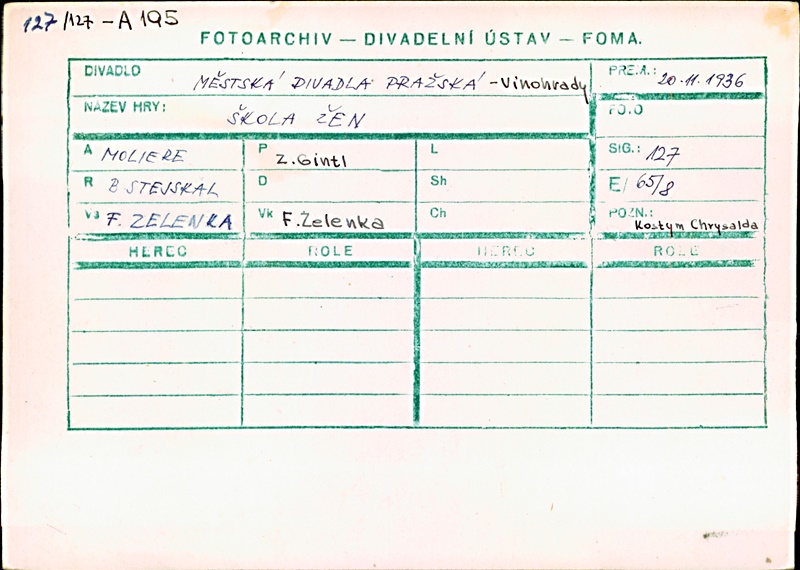 127/127 - A 195
FOTOARCHIV — DIVADELNÍ ÚSTAV — FOMA.
DIVADLO MĚSTSKÁ DIVADLA PRAŽSKÁ - Vinohrady PREM.: 20.11.1936
NÁZEV HRY: ŠKOLA ŽEN FOTO
A MOLIERE P Z. Gintl L SIG.: 127
R B STEJSKAL D Sh E/ 65/8
Vs F. ZELENKA Vk F. Zelenka Ch POZN.: Kostym Chrysalda
HEREC ROLE HEREC ROLE